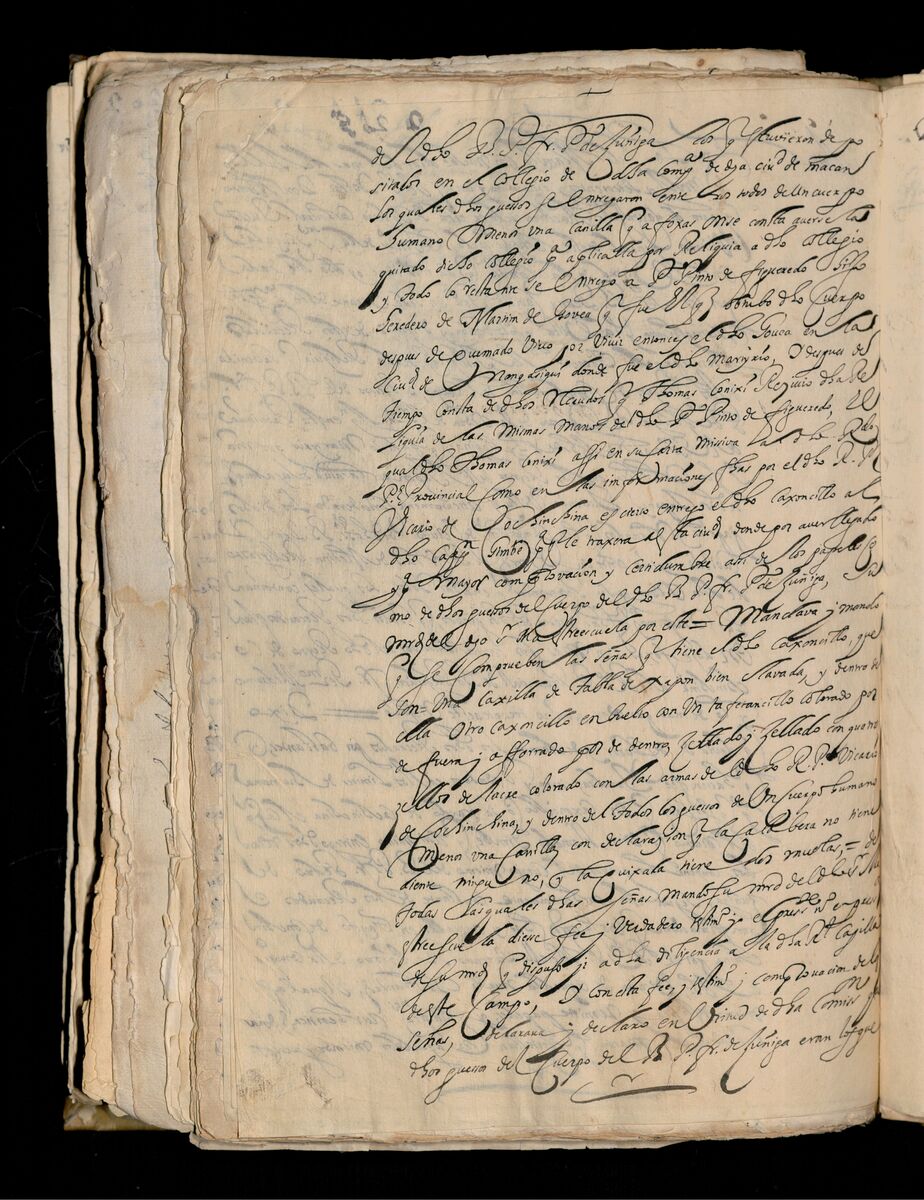 del dho B. P. fr. P.º de Çuñiga los q estuvieron depo
sitados en el collegio de la dha Comp.ª de dha ciu.d de macan
los quales dhos guessos se entregaron ente ros todos de un cuerpo
humano menos una canilla q a foxas onse consta averse la
quitado dicho collegio p.ª aplicalla por Reliquia a dho collegio
y todo lo restante se entrego a P.º Pinto de figueredo hijo
heredero de Martim de Govea q fue el q obtubo dho Cuerpo
despues de quemado vivo por vivir entonces el dho Govea en la
Ciu.d de Nangasaqui donde fue el dho Martyrio, y despues de
tiempo consta de dhos q Thomas Conixi Resivio dha Re
liquia de las mismas manos del dho P.º Pinto de figueredo, El
qual dho Thomas Conixi assi en su carta missiva a dho R.do
P.e Provincial como en las informaciones fhas por el dho R. P.
Vicario de Cochinchina es cierto entrego el dho caxoncillo al
dho capp.n p.ª q le traxera a esta ciu.d donde por aver llegado
y p.ª mayor comprovación y certidumbre asi de los papeles co
mo de dhos guessos del cuerpo del dho B. P. fr. P.º de Çuñiga, su
mrd del s.r Maestreescuela por este = Mandava y mando
q se comprueben las señas q tiene el dho caxoncillo, que
son = Una caxilla de tabla de xapon bien clavada, y dentro de
ella otro caxoncillo enbuelto con un tafetancillo colorado por
de fuera y afforrado por de dentro y sellado con quatro
sellos de lacre colorado con las armas del dho R. P. Vicario
de Cochinchina, y dentro del todos los guessos de un cuerpo humano
menos una canilla con declarasion q la calabera no tiene
diente ninguno, y la quixada tiene dos muelas, = de
todas las quales dhas señas mando su mrd del dho s.r Ma
estreescuela diesse fee y verdadero testim.º yo el press.te n.º
de su mrd q dispuss
de este Campo, y con esta fee, y testim.º y comprovacion de las
señas, declarava y declaro en virtud de dha Comiss.on q
dhos guessos del Cuerpo del B. P. fr. de Çuñiga eran los que